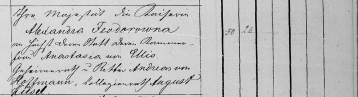 Ihre Majestät die Kaiserin
Alexandra Feodorowna
an Höchst deren Statt deren Kammer-
frau Anastasia von Ellis
Geheimerath u Ritter Andreas von
Hoffmann, Collegienrath August
50 26